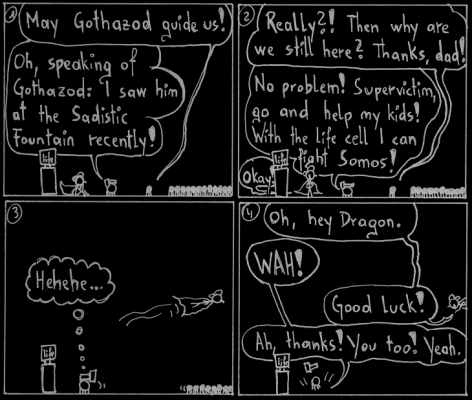 1
May Gothazod guide us!
Oh, speaking of
Gothazod: I saw him
at the Sadistic
Fountain recently!
life
2
Really?! Then why are
we still here? Thanks, dad!
No problem! Supervictim,
go and help my kids!
With the life cell I can
fight Somos!
Okay!
life
3
Hehehe...
life
4
Oh, hey Dragon.
WAH!
Good Luck!
Ah, thanks! You too! Yeah.
life